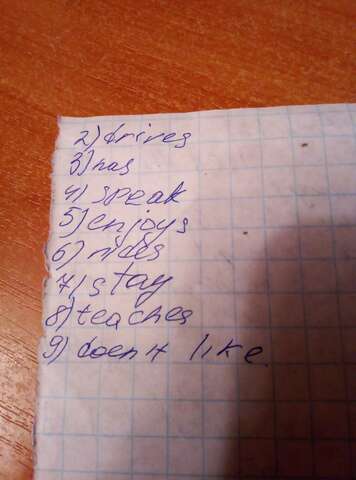 2) drives
3) has
4) speak
5) enjoys
6) rides
7) stay
8) teaches
9) doen't like